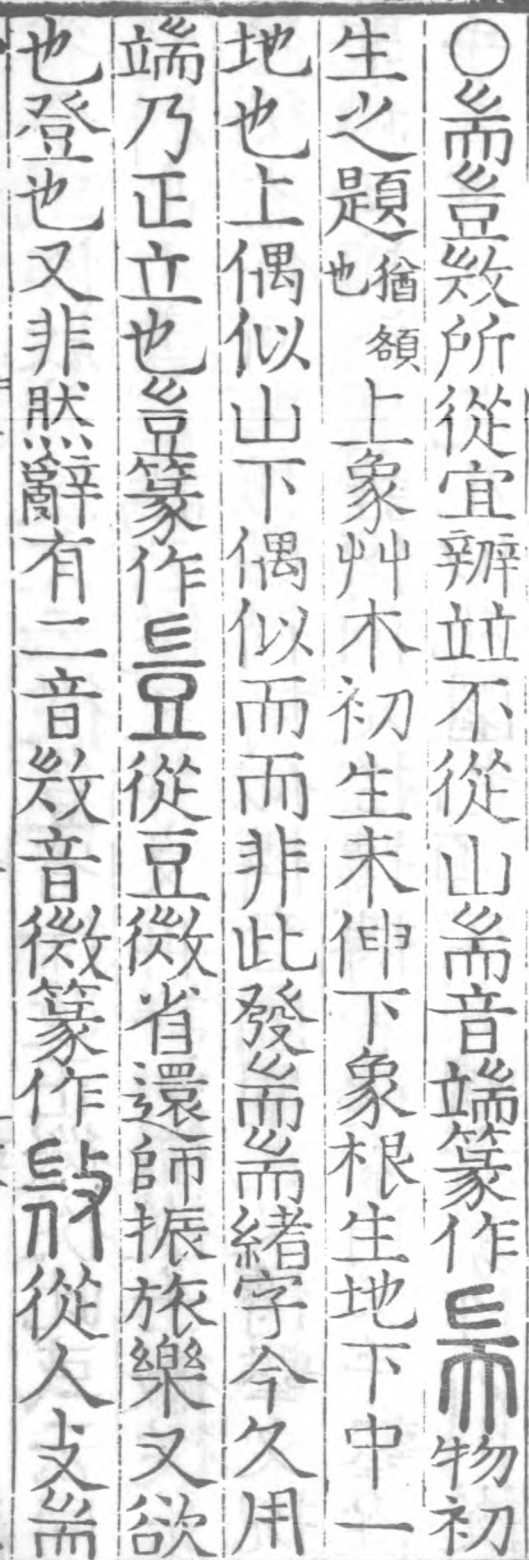 ○耑豈敳所從宜辦竝不從山耑音端篆作耑物初
生之題猶額也上象艸木初生未伸下象根生地下中一
地也上偶似山下偶似而而非此發耑耑緖字今久用
端乃正立也豈篆作豈從豆微省還師振旅樂又欲
也登也又非然辭有二音敳音微篆作敳從人攴耑